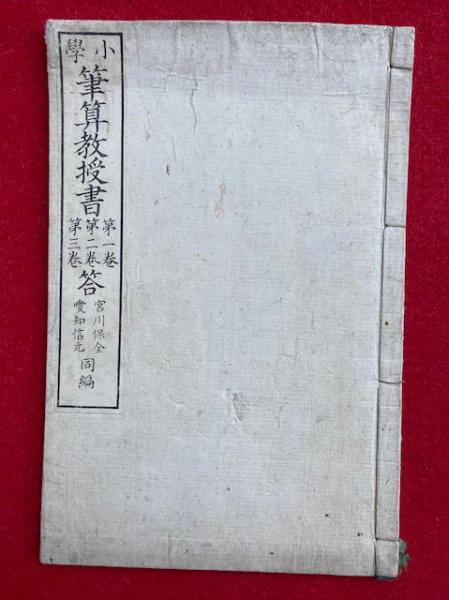 小學
筆算教授書
第一卷
第二卷
第三卷
答
宮川保全
愛知信元
同編